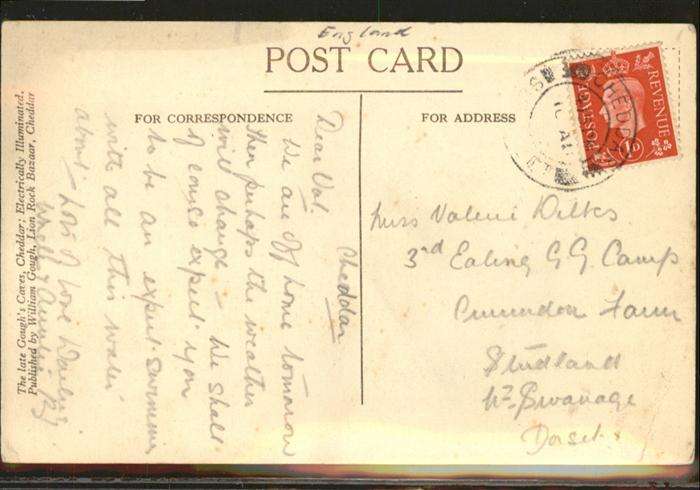 England
POST CARD
FOR CORRESPONDENCE
FOR ADDRESS
The late Gough's Caves, Cheddar; Electrically Illuminated.
Published by William Gough, Lion Rock Bazaar, Cheddar
Cheddar
Dear Val.
We are off home tomorrow
then perhaps the weather
will change – We shall
of course expect you
to be an expert swimmer
with all this water
about – Lots of love
REVENUE
POSTAGE
1D
CHEDDAR
Miss Valerie Dilks
3rd Ealing G G Camp
Farm
Studland
Nr Swanage
Dorset